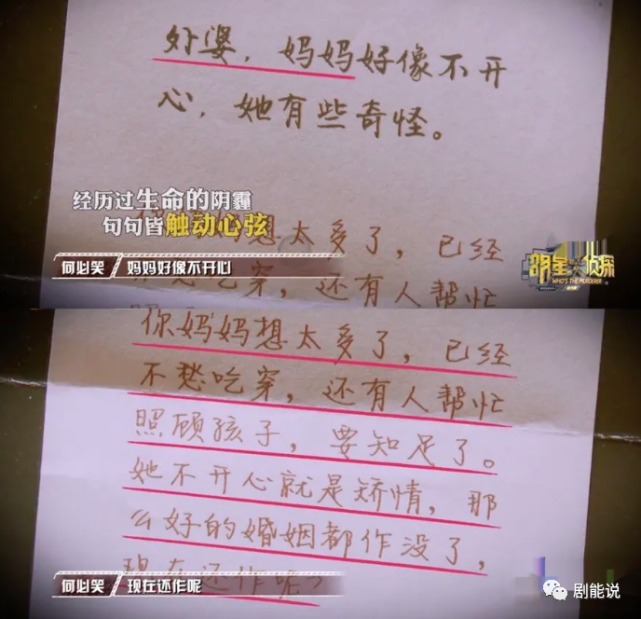 外婆，妈妈好像不开
心，她有些奇怪。
经历过生命的阴霾
句句皆触动心弦
想太多了，已经
吃穿，还有人帮忙
何必笑 妈妈好像不开心
明星大侦探
WHO'S THE MURDERER
你妈妈想太多了，已经
不愁吃穿，还有人帮忙
照顾孩子，要知足了。
她不开心就是矫情，那
么好的婚姻都作没了，
现在还作呢？
何必笑 现在还作呢
剧能说